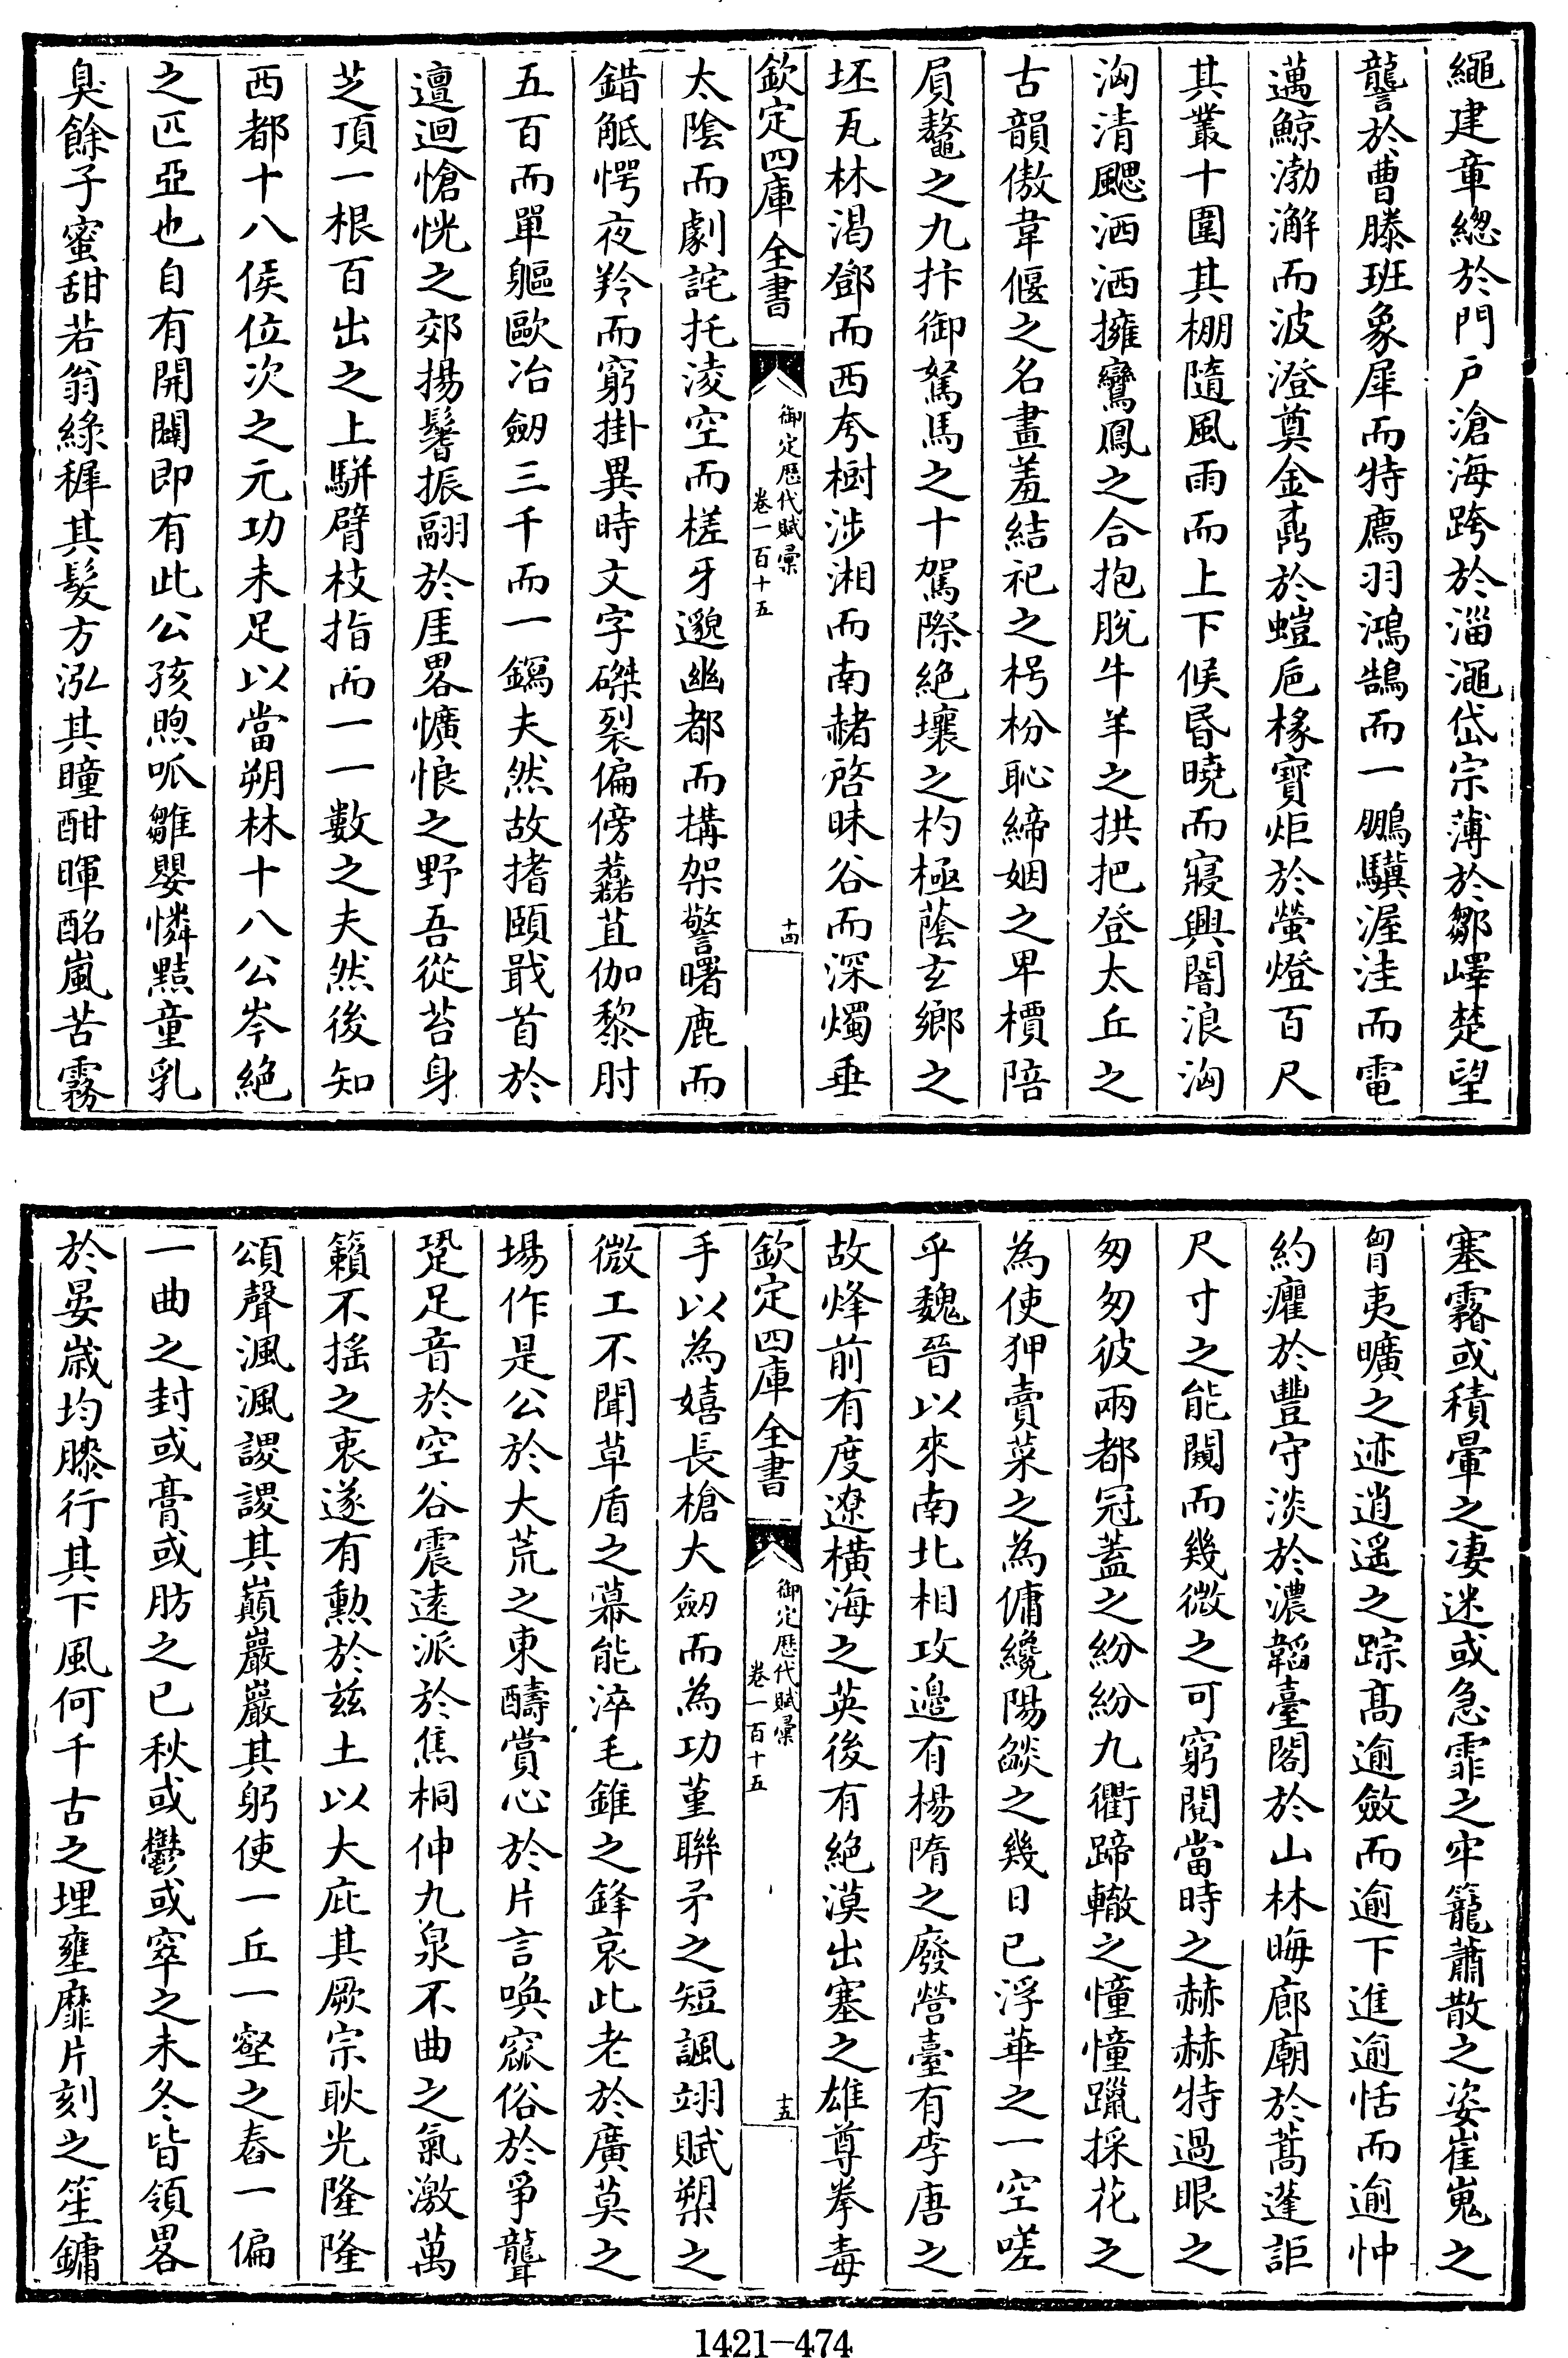 繩建章緫於門戸滄海跨於淄澠岱宗薄於鄒嶧楚望
讋於曹滕班象犀而特麃羽鴻鵠而一鵬驥渥洼而電
邁鯨渤澥而波澄奠金鼒於螘巵椽寶炬於螢燈百尺
其叢十圍其棚隨風雨而上下候昏曉而寢興闇浪洶
洶清颸洒洒擁鸞鳳之合抱脫牛羊之拱把登太丘之
古韻傲韋偃之名畫羞結祀之枵枌恥締姻之卑檟陪
屓鼇之九抃御駑馬之十駕際絶壤之杓極蔭玄鄉之
坯瓦林渴鄧而西夸樹涉湘而南赭啓昧谷而深燭垂
欽定四庫全書
御定歷代賦彙
卷一百十五
十四
太陰而劇詫托淩空而槎牙邈幽都而搆架警曙鹿而
錯觝愕夜羚而窮掛異時文字磔裂偏傍藞苴伽黎肘
五百而單軀歐冶劒三千而一鐍夫然故揩頤戢首於
邅迴愴怳之郊揚鬐振翮於厓畧懭悢之野吾從苔身
芝頂一根百出之上駢臂枝指而一一數之夫然後知
西都十八侯位次之元功未足以當朔林十八公岑絶
之匹亞也自有開闢即有此公孩煦呱雛嬰憐黠童乳
臭餘子蜜甜若翁綠穉其髮方泓其瞳酣暉酩嵐苦霧
塞靄或積暈之凄迷或急霏之牢籠蕭散之姿崔嵬之
胷夷曠之迹逍遥之踪髙逾斂而逾下進逾恬而逾忡
約癯於豐守淡於濃韜臺閣於山林晦廊廟於蒿蓬詎
尺寸之能闚而幾微之可窮閱當時之赫赫特過眼之
匆匆彼兩都冠蓋之紛紛九衢蹄轍之憧憧躐採花之
為使狎賣菜之為傭纔陽燄之幾日已浮華之一空嗟
乎魏晉以來南北相攻邉有楊隋之廢營臺有李唐之
故烽前有度遼橫海之英後有絶漠出塞之雄尊拳毒
欽定四庫全書
御定歷代賦彙
卷一百十五
十五
手以為嬉長槍大劒而為功堇聯矛之短諷翊賦槊之
微工不聞草盾之幕能淬毛錐之鋒哀此老於廣莫之
場作是公於大荒之東醻賞心於片言喚窊俗於爭聾
跫足音於空谷震逺派於焦桐伸九泉不曲之氣激萬
籟不揺之衷遂有勲於兹土以大庇其厥宗耿光隆隆
頌聲渢渢謖謖其巓巖巖其躬使一丘一壑之舂一偏
一曲之封或膏或肪之已秋或鬱或窣之未冬皆領畧
於晏歳均膝行其下風何千古之埋壅靡片刻之笙鏞
1421-474